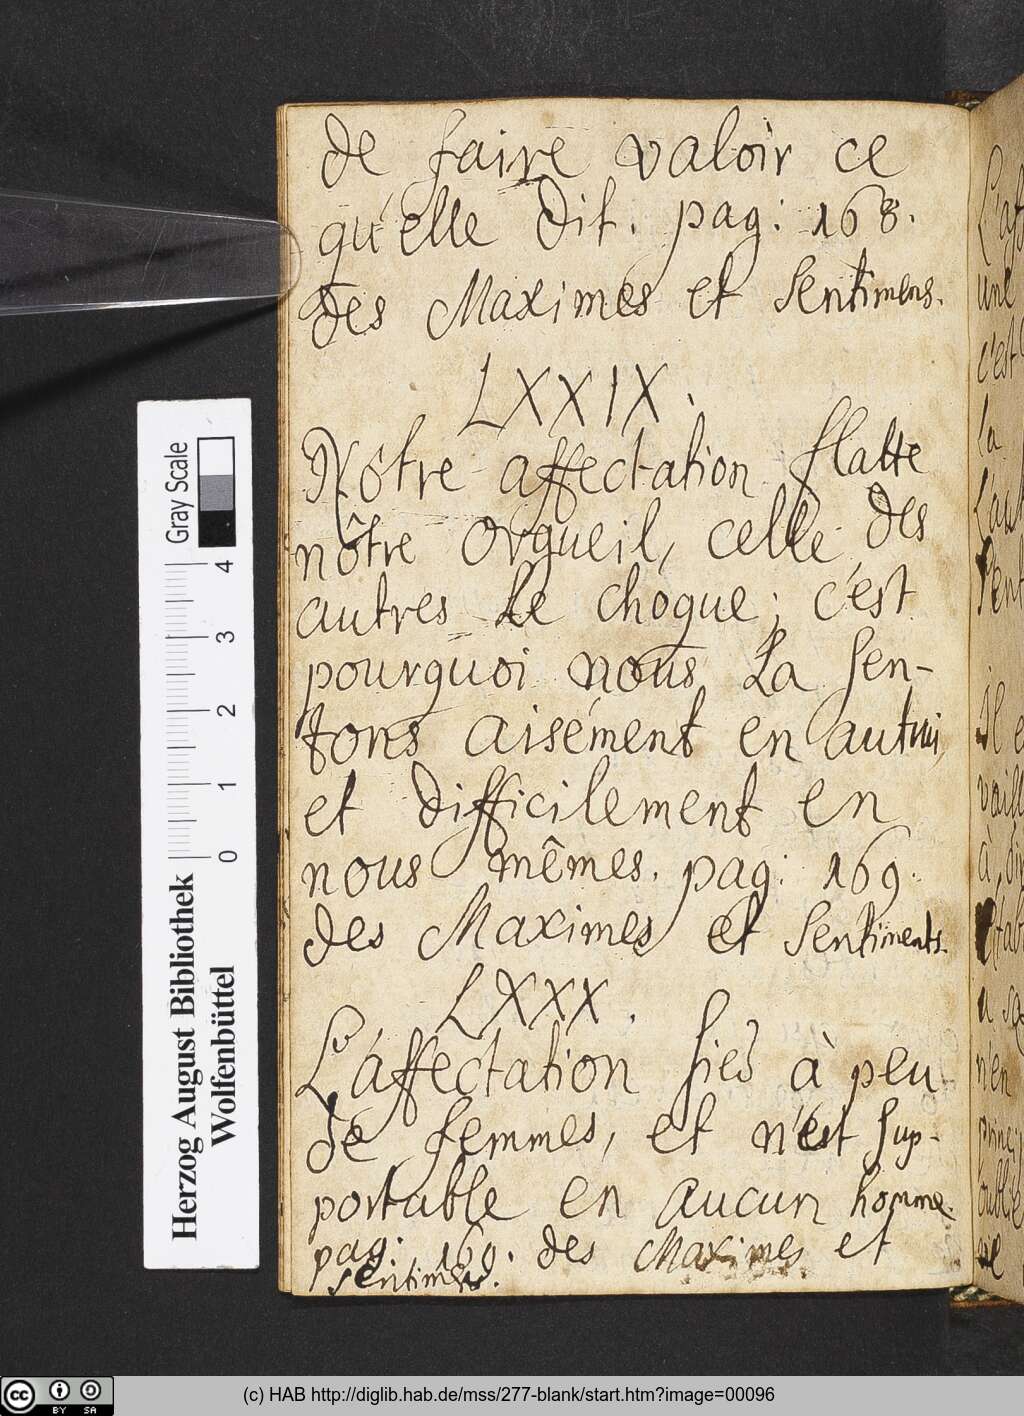 de faire valoir ce
qu'elle dit. pag: 168.
des Maximes et sentimens.
LXXIX.
Nôtre affectation flatte
nôtre orgueil, celle des
autres Le choque; c'est
pourquoi nous La sen-
tons aisément en autrui,
et difficilement en
nous mêmes. pag: 169.
des Maximes et sentiments.
LXXX.
L'affectation sied à peu
de femmes, et n'est sup-
portable en aucun homme.
pag: 169. des Maximes et
sentimens.
une
c'est
la
il e
à
n'en
Gray Scale
4
3
2
1
0
Herzog August Bibliothek
Wolfenbüttel
cc BY SA
(c) HAB http://diglib.hab.de/mss/277-blank/start.htm?image=00096